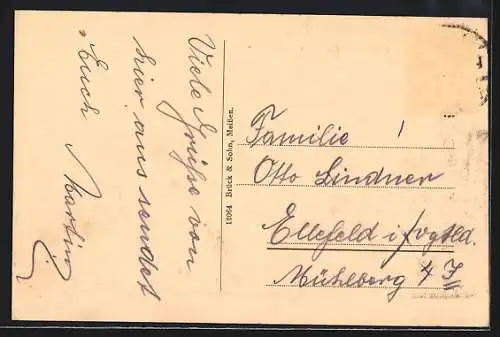 Viele Grüße von
hier aus sendet
Euch Martin
11064 Brück & Sohn, Meißen.
Familie
Otto Lindner
Ellefeld i/Vogtld.
Mühlberg 4 I